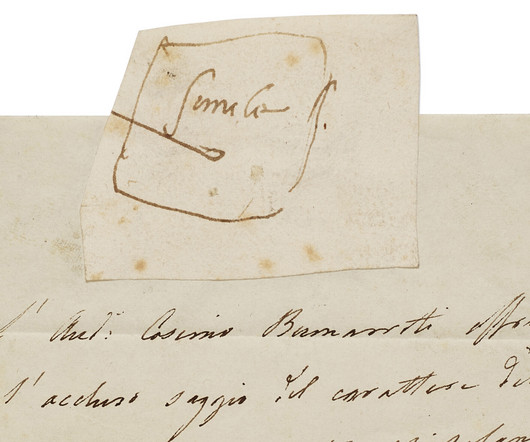 simile
l' Aud.: Cosimo Buonarroti offr
l'accluso saggio del carattere di